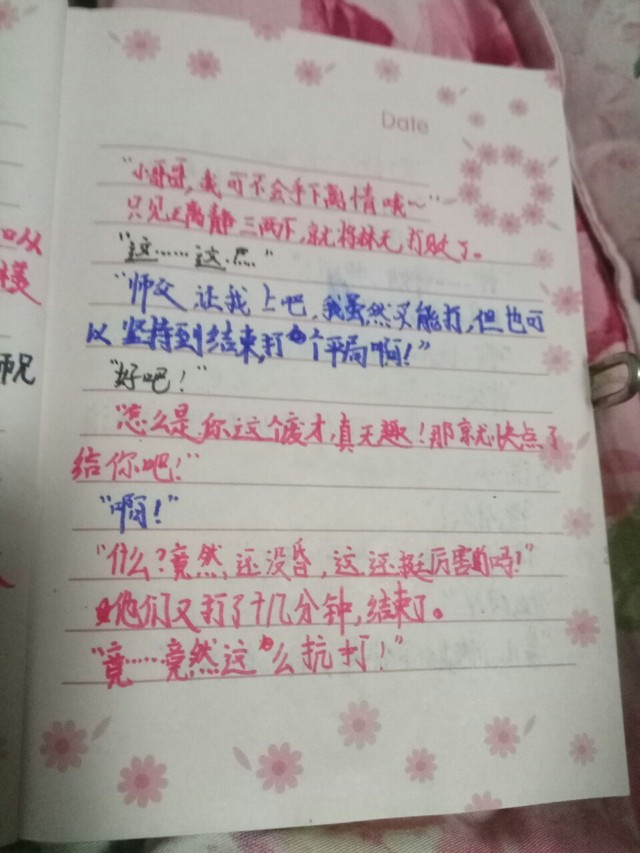 Date
"小哥哥,我可不会手下离情哦~"
只见王离静三两下,就将林无打败了。
"这……这.点"
"师父 让我上吧,我虽然不能打,但也可
以坚持到结束,打个平局啊!"
"好吧!"
"怎么是你这个废才,真无趣!那就快点了
结你吧!"
"啊!"
"什么?竟然,还没昏,这还挺厉害的吗!"
他们又打了十几分钟,结束了。
"竟……竟然这么抗打!"
以
师兄